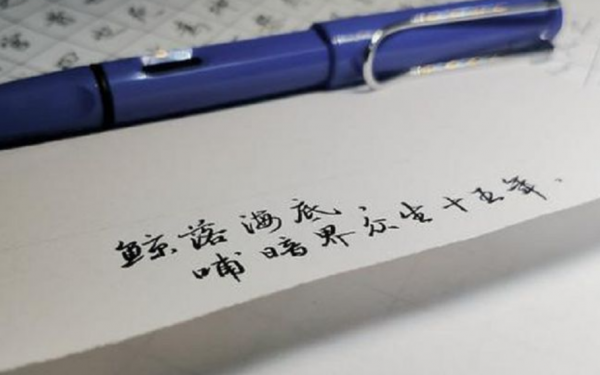 鲸落海底，
哺暗界众生十五年。